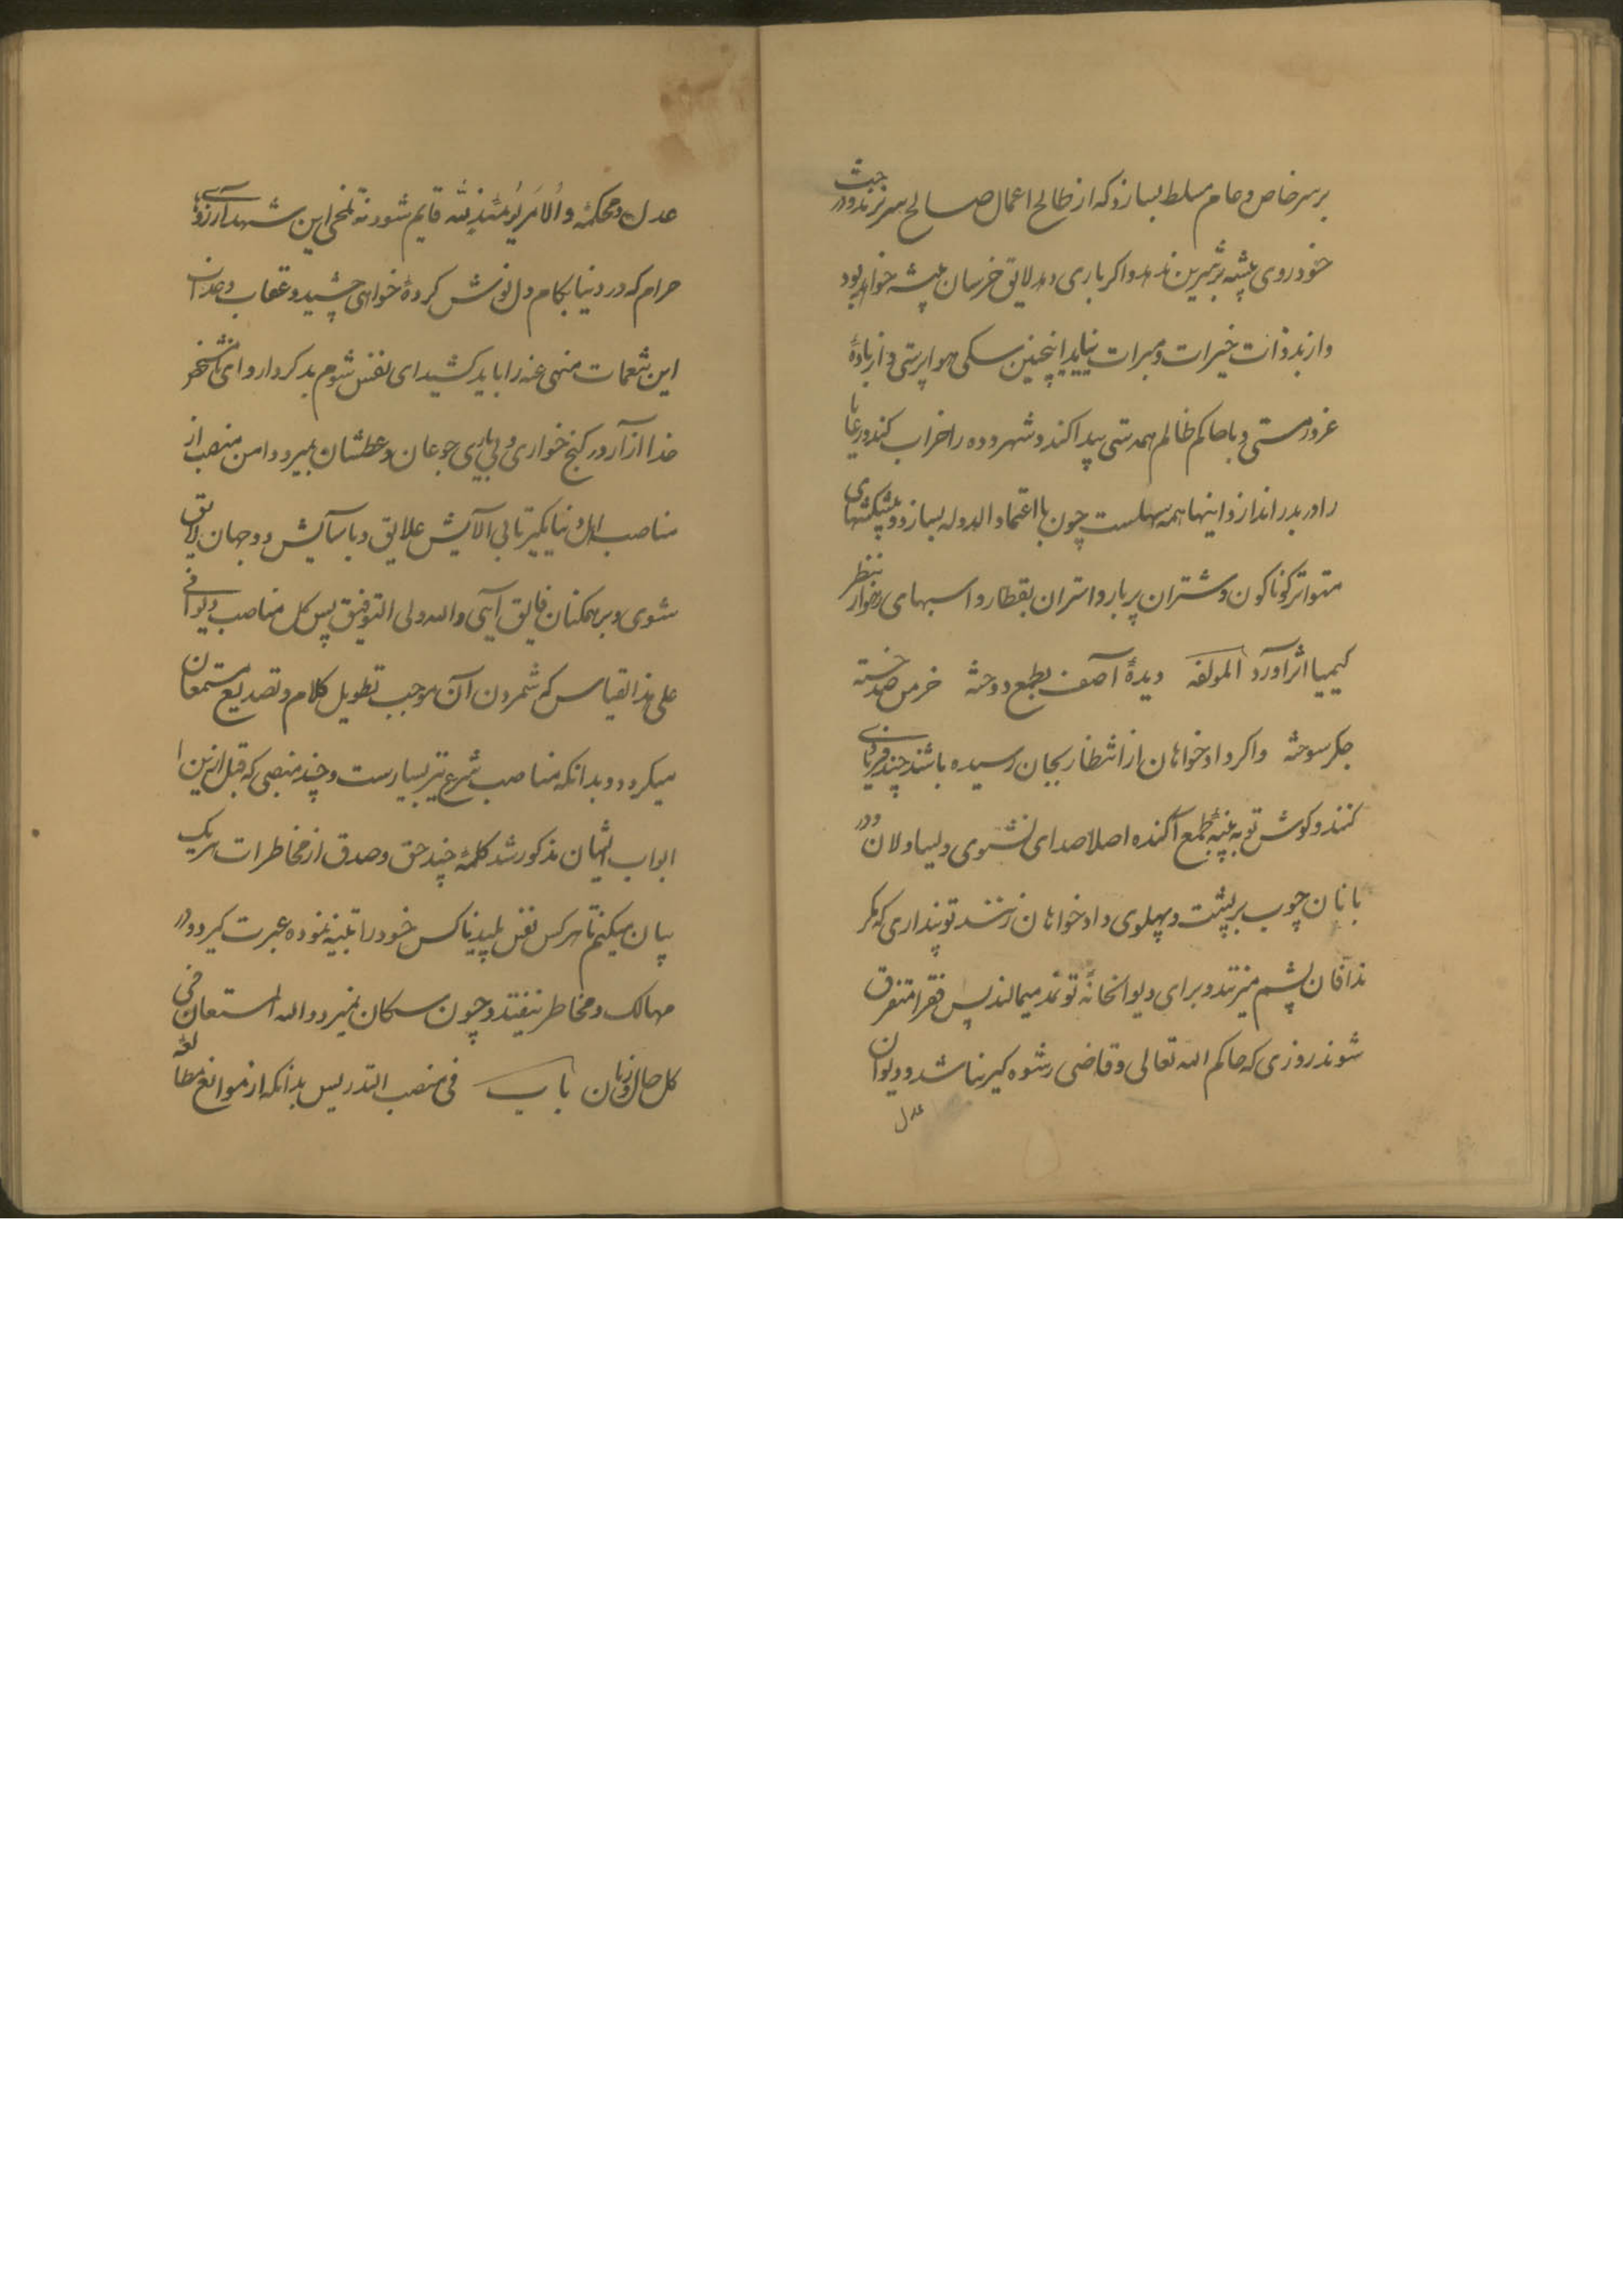 بر سر خاص و عام مسلط بسازد که از ظالم اعمال صالح سر نزند و درخت
خودروی بیشه بر شیرین ندهد و اکر باری دهد لایق خرسان بیشه خواهد بود
و از بدذات خیرات و مبرات نیاید اینچنین سکی هواپرستی و از باده
غرور مستی و با حاکم ظالم همدستی پیدا کند و شهر و ده را خراب کند و رعایا
را دربدر اندازد و اینها همه سهلست چون با اعتماد الدوله بسازد و پیشکشهای
متواتر کوناکون و شتران پربار و استران بقطار و اسبهای رهوار بنظر
کیمیا اثر آورد المولفه دیدهٔ آصف بطمع دوخته خرمن صد خسته
جکر سوخته و اکر دادخواهان از انتظار بجان رسیده باشند چند فریادی
کنند و کوش تو به پنبهٔ طمع آکنده اصلا صدای نشنوی و یساولان و در
بانان چوب بر پشت و پهلوی دادخواهان زنند تو پنداری که مکر
ندافان پشم میزنند و برای دیوانخانهٔ تو نمد میمالند پس فقرا متفرق
شوند روزی که حاکم الله تعالی و قاضی رشوه کیر نباشد و دیوان
عدل
عدل و محکمهٔ والامر یومئذ لله قایم شود نه تلخی این شهد
حرام که در دنیا بکام دل نوش کردهٔ خواهی چشید و عقاب و عذاب
این شعمات منهی عنه را باید کشید ای نفس شوم بدکردار و ای
خدا آزار در کنج خواری و بی یاری جوعان و عطشان بمیر و دامن منصب از
مناصب اهل دنیا مکیر تا بی آلایش علایق و با آسایش دو جهان لایق
شوی و بر همکنان فایق آیی والله ولی التوفیق پس کل مناصب دیوانی
علی هذا القیاس که شمردن آن موجب تطویل کلام و تصدیع مستمعان
میکردد و بدانکه مناصب شرع نیز بسیارست و چند منصبی که قبل ازین
ابواب ایشان مذکور شد کلمهٔ چند حق و صدق از مخاطرات هر یک
بیان میکنم تا هر کس نفس پلید ناکس خود را تنبیه نموده عبرت کیرد و در
مهالک و مخاطر نیفتد و چون سکان نمیرد والله المستعان فی
کل حال و زمان باب فی منصب التدریس بدانکه از موانع مطالعه